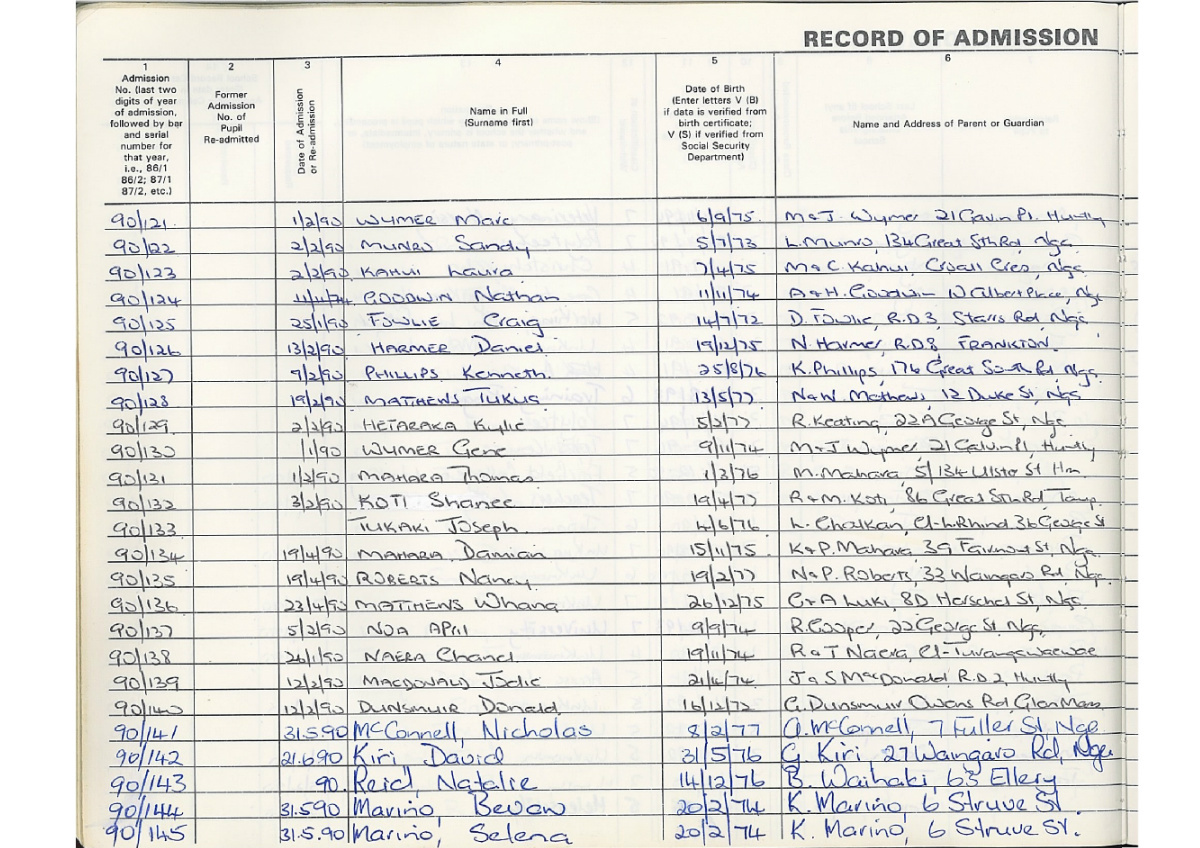 RECORD OF ADMISSION
1 2 3 4 5 6
Admission No. (last two digits of year of admission, followed by bar and serial number for that year, i.e., 86/1 86/2; 87/1 87/2, etc.)
Former Admission No. of Pupil Re-admitted
Date of Admission or Re-admission
Name in Full (Surname first)
Date of Birth (Enter letters V (B) if data is verified from birth certificate; V (S) if verified from Social Security Department)
Name and Address of Parent or Guardian
90/121 1/2/90 WYMER Marc 6/9/75 M & J. Wymer 21 Gavin Pl. Huntly
90/122 2/2/90 MUNRO Sandy 5/7/73 L. Munro, 134 Great Sth Rd, Nga
90/123 2/2/90 KAHUI Laura 7/4/75 M & C. Kahui, Croall Cres, Nga
90/124 GOODWIN Nathan 11/11/74 A & H. Goodwin 10 Albert Place, Nga
90/125 25/1/90 FOWLIE Craig 14/7/72 D. Fowlie, R.D 3, Starrs Rd, Nga
90/126 13/2/90 HARMER Daniel 19/12/75 N. Harmer, R.D 8, FRANKTON.
90/127 9/2/90 PHILLIPS Kenneth. 25/8/76 K. Phillips, 176 Great South Rd Nga.
90/128 19/2/90 MATHEWS TUKUS 13/5/77 N & W. Mathews, 12 Duke St, Nga
90/129 2/2/90 HETARAKA Kylie 5/2/77 R. Keating, 22A George St, Nga
90/130 /1/90 WYMER Gene 9/11/74 M & J Wymer, 21 Galvin Pl, Huntly
90/131 1/2/90 MAHARA Thomas 1/3/76 M. Mahara, 5/134 Ulster St Hm
90/132 3/2/90 KOTI Shanee 19/4/77 R & M. Koti, 86 Great Sth Rd Taup.
90/133 TUKAKI Joseph 4/6/76 36 George St
90/134 19/4/90 MAHARA Damian 15/11/75 K & P. Mahara 39 Fairmont St, Nga
90/135 19/4/90 ROBERTS Nancy 19/2/77 N & P. Roberts, 33 Waingaro Rd, Nga
90/136 23/4/90 MATTHEWS Whana 26/12/75 C & A Luki, 8D Herschel St, Nga.
90/137 5/2/90 NOA April 9/9/74 R. Cooper, 22 George St. Nga.
90/138 26/1/90 NAERA Chanel 19/11/74 R & T Naera, Cl-Turangawaewae
90/139 12/2/90 MACDONALD Jodie 21/4/74 J & S MacDonald R.D 2, Huntly
90/140 12/2/90 DUNSMUIR Donald 16/12/72 G. Dunsmuir Owens Rd, Glen Massey
90/141 31.5.90 McConnell, Nicholas 8/2/77 McConnell, 7 Fuller St Nga
90/142 21.6.90 Kiri, David 31/5/76 G. Kiri, 27 Waingaro Rd, Nga
90/143 90. Reid, Natalie 14/12/76 B. Waihaki, 63 Ellery
90/144 31.5.90 Marino, Bevan 20/2/74 K. Marino, 6 Struve St.
90/145 31.5.90 Marino, Selena 20/2/74 K. Marino, 6 Struve St.